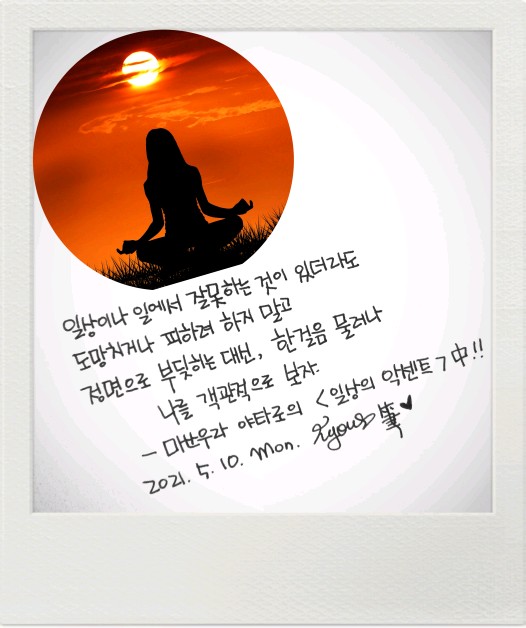 일상이나 일에서 잘못하는 것이 있더라도
도망치거나 피하려 하지 말고
정면으로 부딪히는 대신, 한걸음 물러나
나를 객관적으로 보자.
- 마쓰우라 야타로의 <일상의 악센트> 中!!
2021. 5. 10. mon. 筆♥